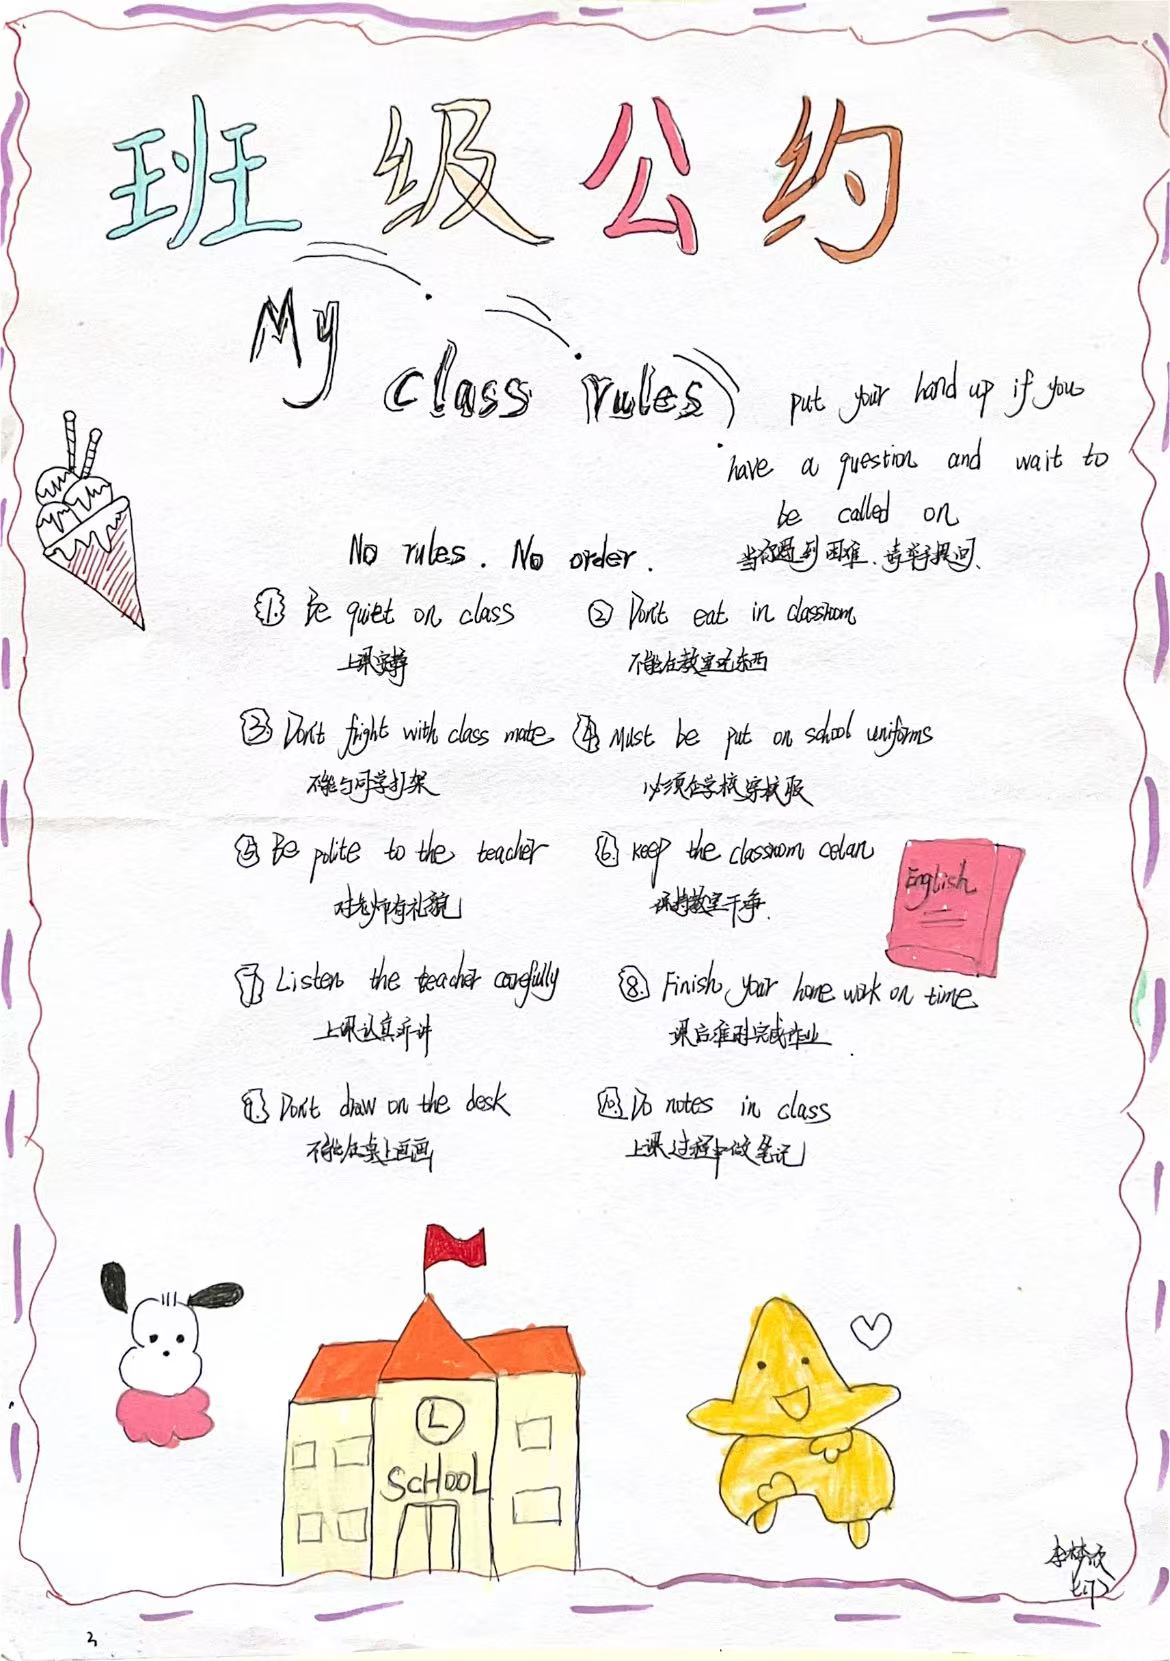 班级公约
My
class rules
put your hand up if you
have a question and wait to
be called on
当你遇到困难、请举手提问、
No rules. No order.
① Be quiet on class
② Don't eat in classroom
上课安静
不能在教室吃东西
③ Don't fright with class mate
④ Must be put on school uniforms
不能与同学打架
必须在学校穿校服
⑤ Be polite to the teacher
⑥ keep the classroom celan
对老师有礼貌
保持教室干净.
English
⑦ Listen the teacher carefully
⑧ Finish your home work on time
上课认真听讲
课后准时完成作业
⑨ Don't draw on the desk
⑩ Do notes in class
不能在桌上画画
上课过程中做笔记
SCHOOL
李梦欣
3